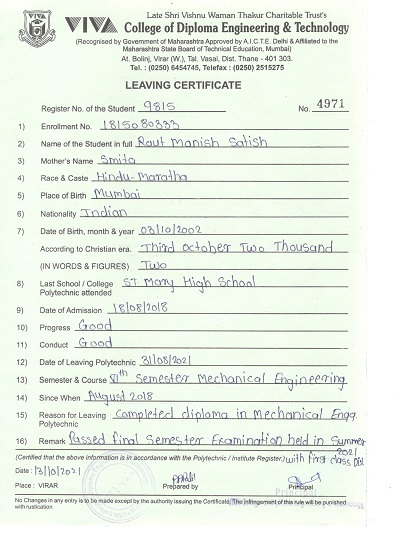 Late Shri Vishnu Waman Thakur Charitable Trust's
VIVA College of Diploma Engineering & Technology
(Recognised by Government of Maharashtra Approved by A.I.C.T.E. Delhi & Affiliated to the
Maharashtra State Board of Technical Education, Mumbai)
At. Bolinj, Virar (W.), Tal. Vasai, Dist. Thane - 401 303.
Tel. : (0250) 6454745, Telefax : (0250) 2515275
LEAVING CERTIFICATE
Register No. of the Student 9815 No. 4971
1) Enrollment No. 1815080333
2) Name of the Student in full Raut Manish Satish
3) Mother's Name Smita
4) Race & Caste Hindu-Maratha
5) Place of Birth Mumbai
6) Nationality Indian
7) Date of Birth, month & year 03/10/2002
According to Christian era. Third October Two Thousand
(IN WORDS & FIGURES) Two
8) Last School / College ST Mary High School
Polytechnic attended
9) Date of Admission 18/08/2018
10) Progress Good
11) Conduct Good
12) Date of Leaving Polytechnic 31/08/2021
13) Semester & Course VIth Semester Mechanical Engineering
14) Since When August 2018
15) Reason for Leaving Completed diploma in Mechanical Engg.
Polytechnic
16) Remark Passed final Semester Examination held in Summer
2021
(Certified that the above Information is in accordance with the Polytechnic / Institute Register.) with First class Dist
Date : 13/10/2021
Place : VIRAR Prepared by Principal
Principal
No Changes in any entry is to be made except by the authority issuing the Certificate, The infringement of this rule will be punished
with rustication